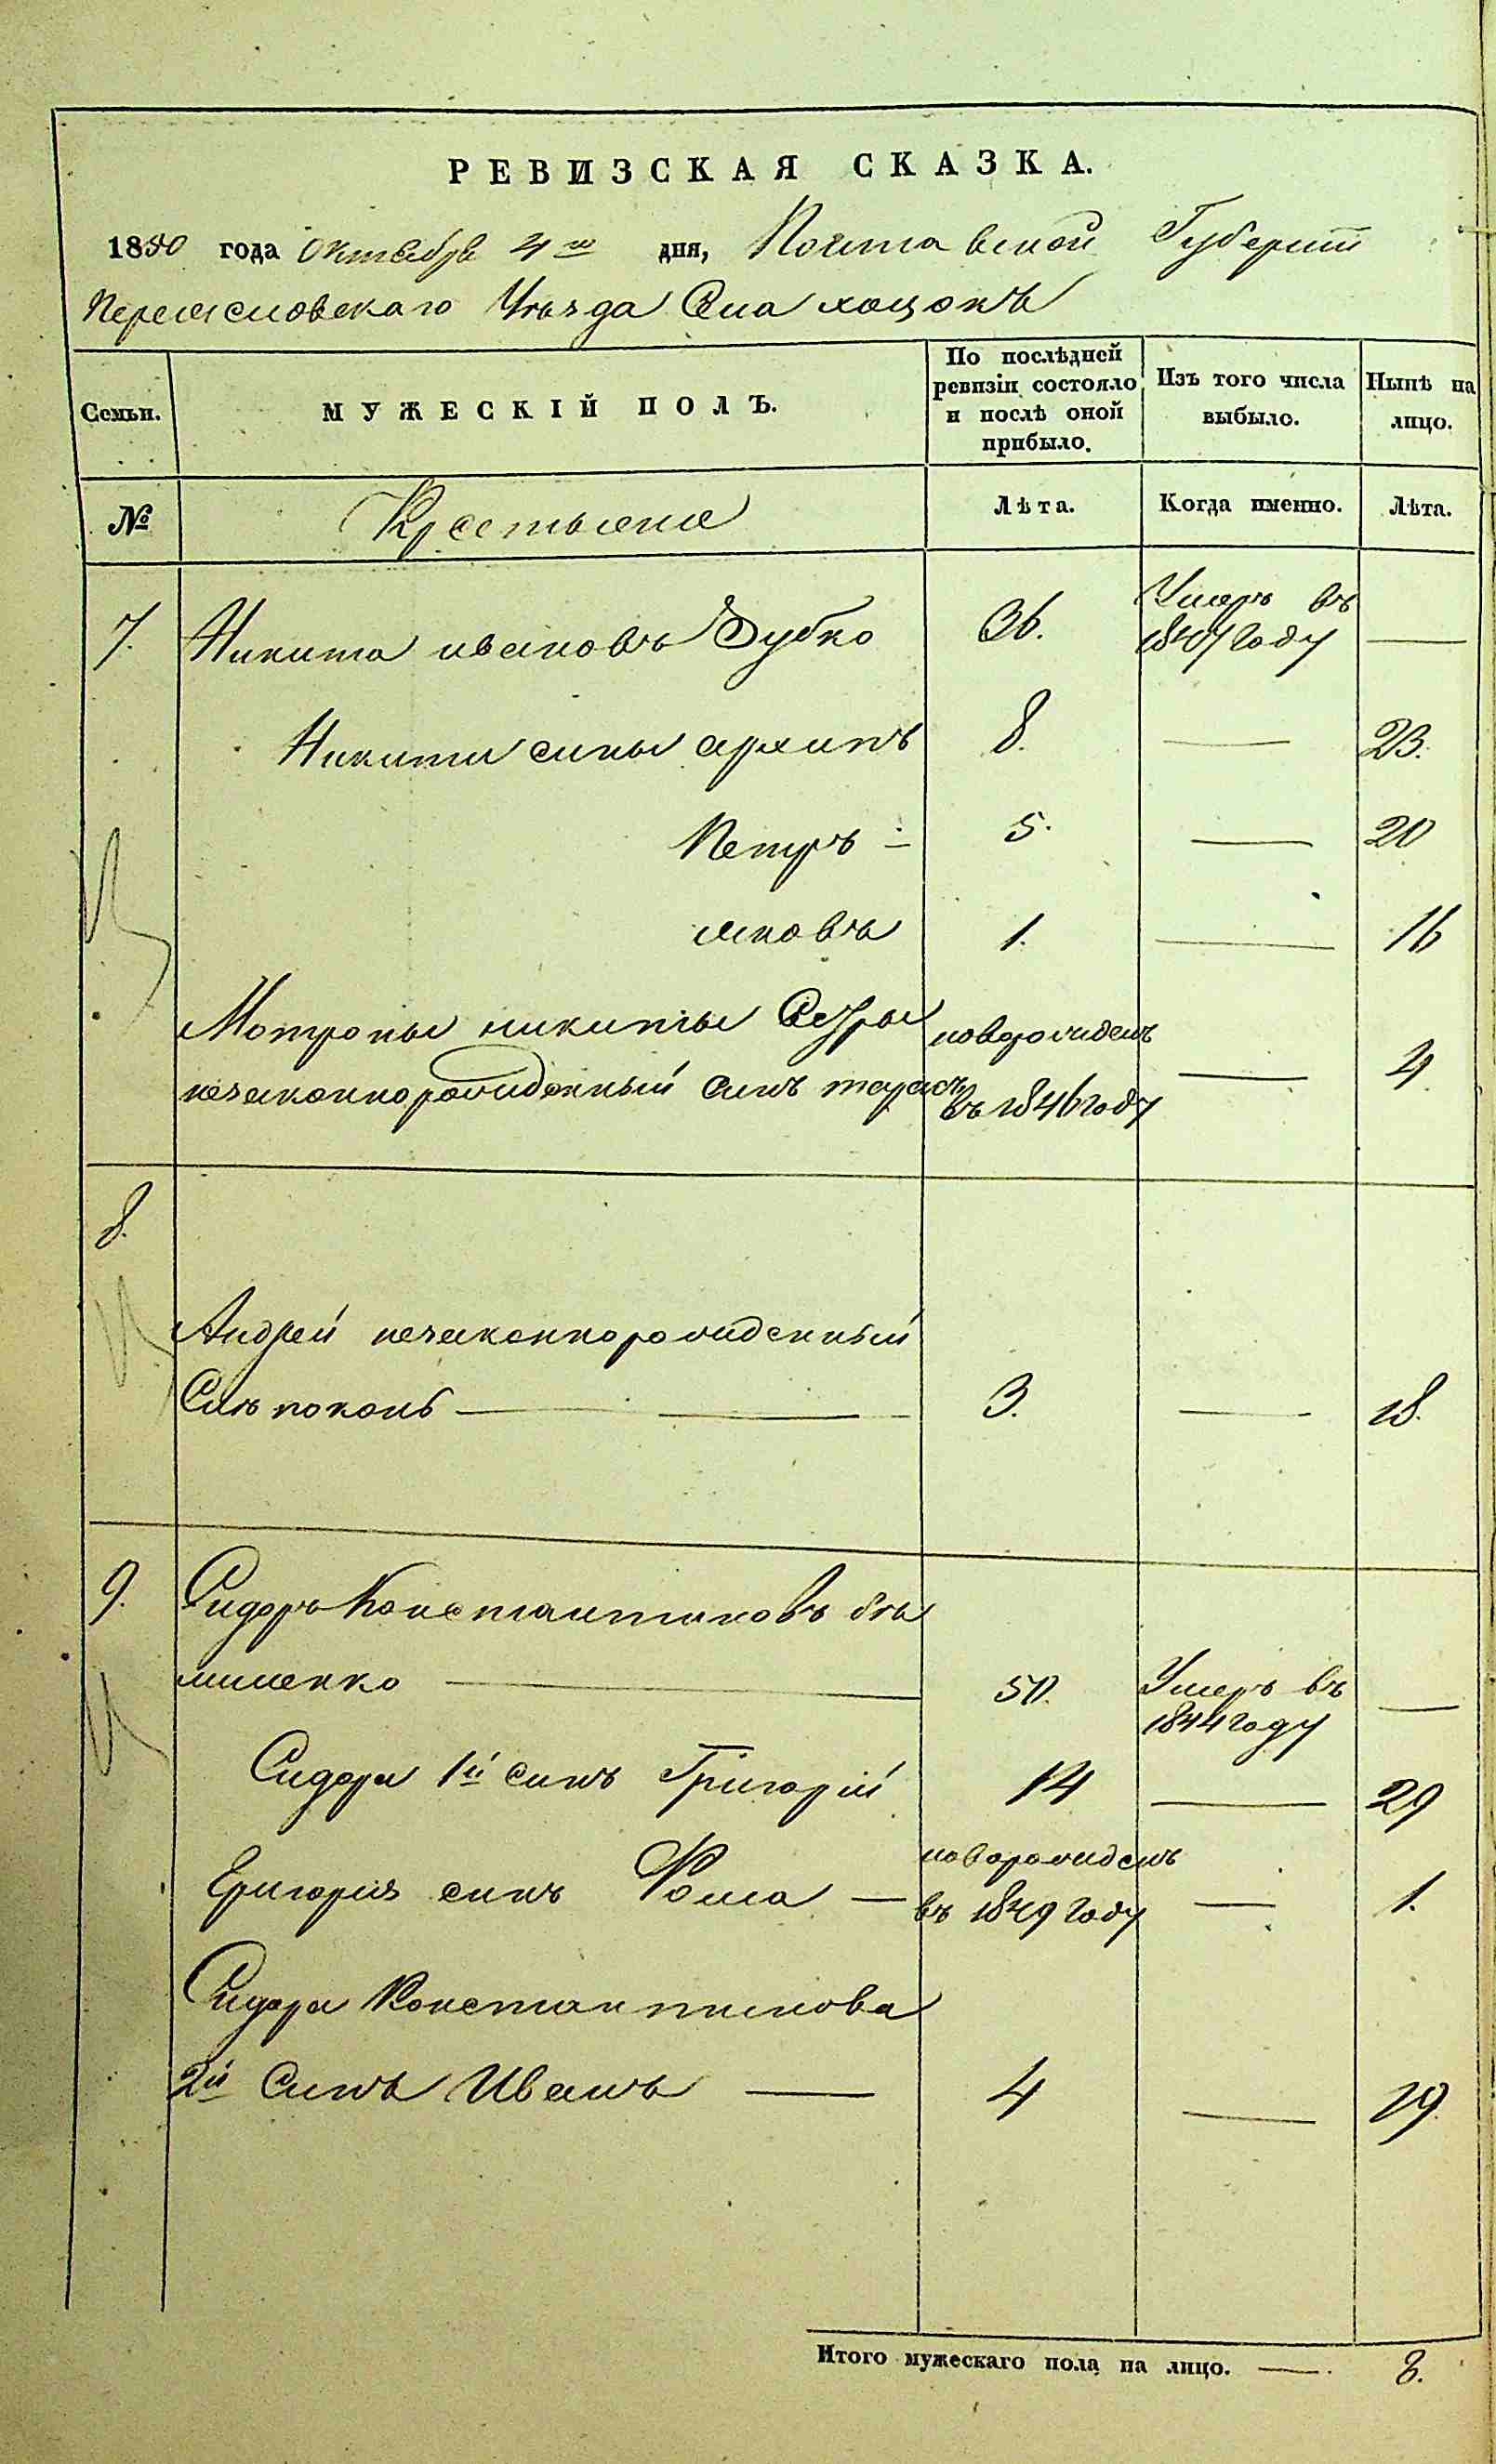 РЕВИЗСКАЯ СКАЗКА.
1850 года октября 4го дня, Полтавской Губернии
Переясловскаго Уезда Села хоцокъ
Семьи.
МУЖЕСКІЙ ПОЛЪ.
По послѣдней ревизіи состояло и послѣ оной прибыло.
Изъ того числа выбыло.
Нынѣ на лицо.
№ Крестьяне Лѣта. Когда именно. Лѣта.
7. Никита ивановъ Зубко 36. Умеръ въ
184 году —
Никиты сины архипъ 8. — 23.
Петръ 5. — 20
яковъ 1. — 16
Мотроны никиты новорожденъ
незаконнорожденный синъ тарасъ въ 1846 году — 4
8.
Андрей незаконнорожденный
3. — 18.
9. Сидоръ Константиновъ
50. Умеръ въ —
1844 году
Сидора 1й синъ Григорій 14 — 29
Григорія синъ Фома — новорожденъ
въ 1849 году — 1.
Сидора Константинова
2й Синъ Иванъ — 4 — 19.
Итого мужескаго пола на лицо. — 8.